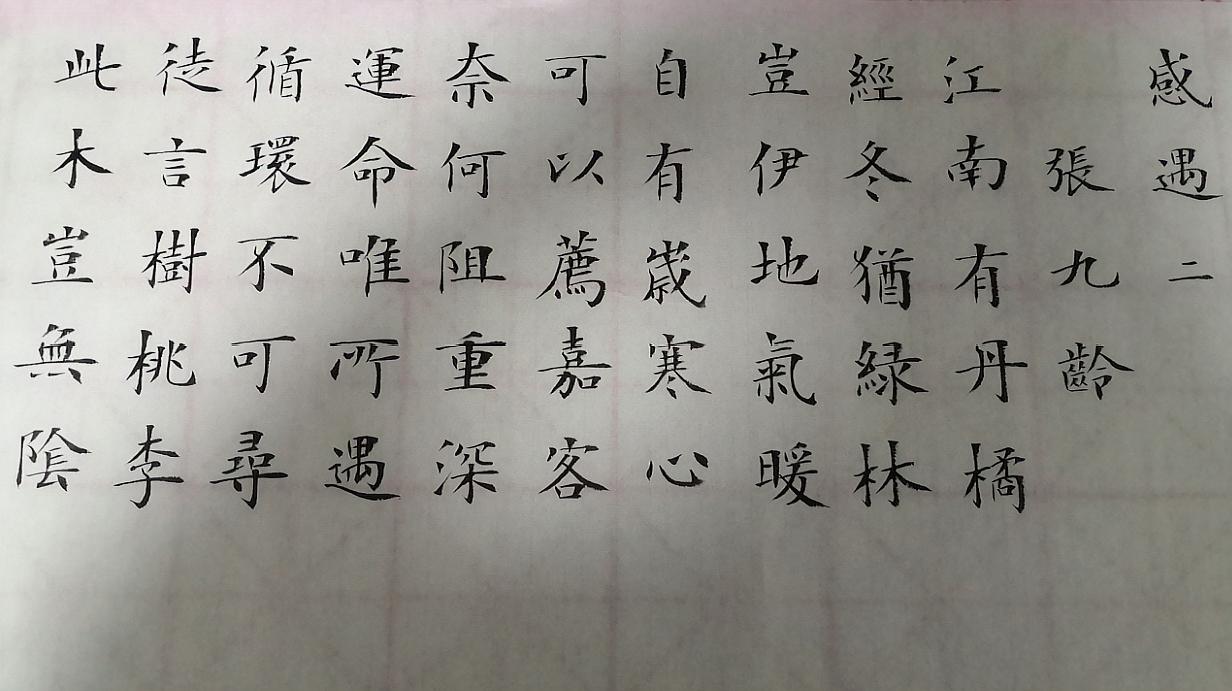 感遇二
張九齡
江南有丹橘
經冬猶緑林
豈伊地氣暖
自有歲寒心
可以薦嘉客
奈何阻重深
運命唯所遇
循環不可尋
徒言樹桃李
此木豈無陰